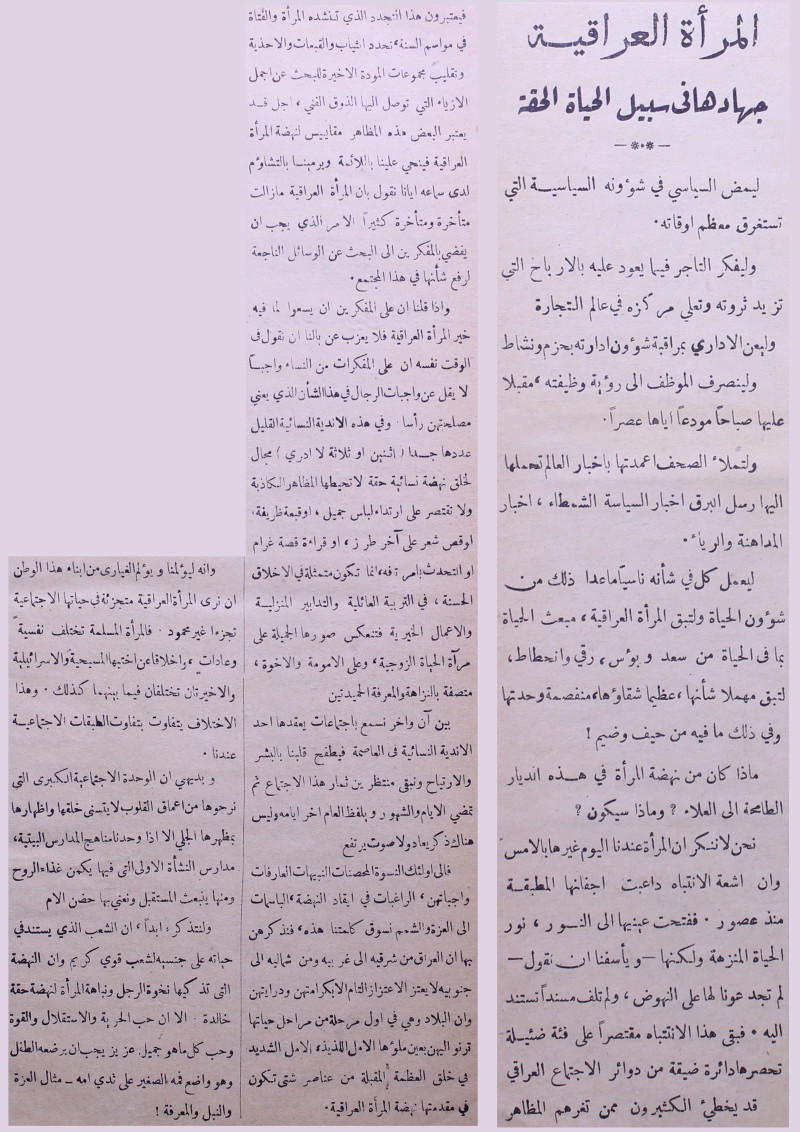 المرأة العراقية
جهادها في سبيل الحياة الحقة
ليمض السياسي في شؤونه السياسية التي
تستغرق معظم اوقاته.
وليفكر التاجر فيما يعود عليه بالارباح التي
تزيد ثروته وتعلي مركزه في عالم التجارة
وليعن الاداري بمراقبة شؤون ادارته بحزم ونشاط
ولينصرف الموظف الى رؤية وظيفته، مقبلا
عليها صباحاً مودعاً اياها عصراً.
ولتملاء الصحف اعمدتها باخبار العالم تحملها
اليها رسل البرق اخبار السياسة الشمطاء، اخبار
المداهنة والرياء.
ليعمل كل في شأنه ناسياً ماعدا ذلك من
شؤون الحياة ولتبق المرأة العراقية، مبعث الحياة
بما في الحياة من سعد وبؤس، رقي وانحطاط،
لتبق مهملا شأنها، عظيما شقاؤها، منفصمة وحدتها
وفي ذلك ما فيه من حيف وضيم!
ماذا كان من نهضة المرأة في هذه الديار
الطامحة الى العلاء؟ وماذا سيكون؟
نحن لاننكر ان المرأة عندنا اليوم غيرها بالامس
وان اشعة الانتباه داعبت اجفانها المطبقة
منذ عصور. ففتحت عينيها الى النور، نور
الحياة المنزهة ولكنها — ويأسفنا ان نقول —
لم تجد عونا لها على النهوض، ولم تلف مسنداً تستند
اليه. فبقى هذا الانتباه مقتصراً على فئة ضئيلة
تحصرها دائرة ضيقة من دوائر الاجتماع العراقي
قد يخطيء الكثيرون ممن تغرهم المظاهر
فيعتبرون هذا التجدد الذي تنشده المرأة والفتاة
في مواسم السنة، تجدد الثياب والقبعات والاحذية
وتقليب مجموعات المودة الاخيرة للبحث عن اجمل
الازياء التي توصل اليها الذوق الفني، اجل قد
يعتبر البعض هذه المظاهر مقاييس لنهضة المرأة
العراقية فينحي علينا باللائمة ويرمينا بالتشاؤم
لدى سماعه ايانا نقول بان المرأة العراقية مازالت
متأخرة ومتأخرة كثيراً الامر الذي يجب ان
يفضي بالمفكرين الى البحث عن الوسائل الناجعة
لرفع شأنها في هذا المجتمع.
واذا قلنا ان على المفكرين ان يسعوا لما فيه
خير المرأة العراقية فلا يعزب عن بالنا ان نقول في
الوقت نفسه ان على المفكرات من النساء واجباً
لا يقل عن واجبات الرجال في هذا الشأن الذي يعني
مصلحتهن رأسا. وفي هذه الاندية النسائية القليل
عددها جدا (اثنين او ثلاثة لا ادري) مجال
لخلق نهضة نسائية حقة لا تحيطها المظاهر الكاذبة
ولا تقتصر على ارتداء لباس جميل، او قبعة ظريفة،
او قص شعر على آخر طرز، او قراءة قصة غرام
او التحدث بامر تافه، انما تكون متمثلة في الاخلاق
الحسنة، في التربية العائلية والتدابير المنزلية
والاعمال الخيرية فتنعكس صورها الجميلة على
مرآة الحياة الزوجية، وعلى الامومة والاخوة،
متصفة بالنزاهة والمعرفة الحميدتين
بين آن واخر نسمع باجتماعات يعقدها احد
الاندية النسائية في العاصمة فيطفح قلبنا بالبشر
والارتياح ونبقى منتظرين ثمار هذا الاجتماع ثم
تمضي الايام والشهور ويلفظ العام اخر ايامه وليس
هناك ذكر يعاد ولا صوت يرتفع
فالى اولئك النسوة المحصنات النبيهات العارفات
واجباتهن، الراغبات في ايقاد النهضة، الباسمات
الى العزة والشمم نسوق كلمتنا هذه، فنذكرهن
بها ان العراق من شرقيه الى غربيه ومن شماليه الى
جنوبيه لا يعتز الاعتزاز التام الا بكرامتهن ودرايتهن
وان البلاد وهي في اول مرحلة من مراحل حياتها
ترنو اليهن بعين ملؤها الامل اللذيذ، الامل الشديد
في خلق العظمة المقبلة من عناصر شتى تكون
في مقدمتها نهضة المرأة العراقية.
وانه ليؤلمنا ويؤلم الغيارى من ابناء هذا الوطن
ان نرى المرأة العراقية متجزئة في حياتها الاجتماعية
تجزءا غير محمود. فالمرأة المسلمة تختلف نفسية
وعادات، واخلاقا عن اختيها المسيحية والاسرائيلية
والاخيرتان تختلفان فيما بينهما كذلك. وهذا
الاختلاف يتفاوت بتفاوت الطبقات الاجتماعية
عندنا.
وبديهي ان الوحدة الاجتماعية الكبرى التي
نرجوها من اعماق القلوب لا يتسنى خلقها واظهارها
بمظهرها الجلي الا اذا وحدنا مناهج المدارس البيتية،
مدارس النشأة الاولى التي فيها يكمن غذاء الروح
ومنها ينبعث المستقبل ونعني بها حضن الام
ولنتذكر، ابداً، ان الشعب الذي يستند في
حياته على جنسيه لشعب قوي كريم وان النهضة
التي تذكيها نخوة الرجل ونباهة المرأة لنهضة حقة
خالدة. الا ان حب الحرية والاستقلال والقوة
وحب كل ماهو جميل عزيز يجب ان يرضعه الطفل
وهو واضع فمه الصغير على ثدي امه — مثال العزة
والنبل والمعرفة!